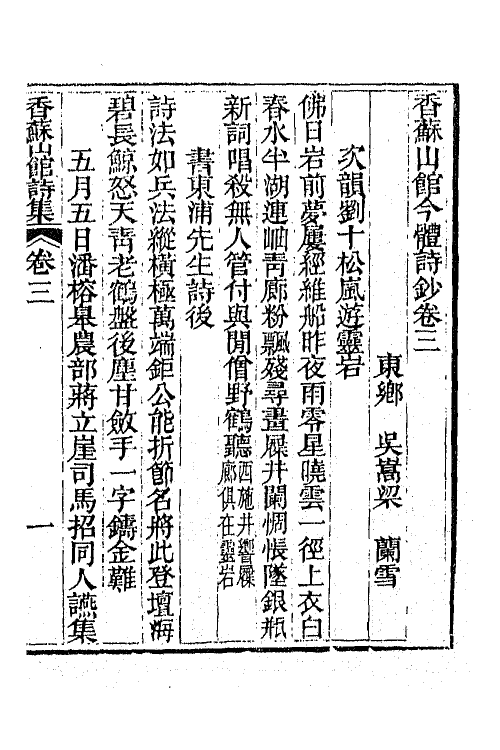 香蘇山館今體詩鈔卷三
東鄉 吳嵩梁 蘭雪
次韻劉十松嵐遊靈岩
佛日岩前夢屢經維船昨夜雨零星曉雲一徑上衣白
春水半湖連岫靑廊粉飄殘尋畫屧井闌惆悵墜銀瓶
新詞唱殺無人管付與閒僧野鶴聽西施井響屧
廊俱在靈岩
書東浦先生詩後
詩法如兵法縱橫極萬端鉅公能折節名將此登壇海
碧長鯨怒天靑老鶴盤後塵甘斂手一字鑄金難
五月五日潘榕皋農部蔣立崖司馬招同人讌集
香蘇山館詩集 卷三 一